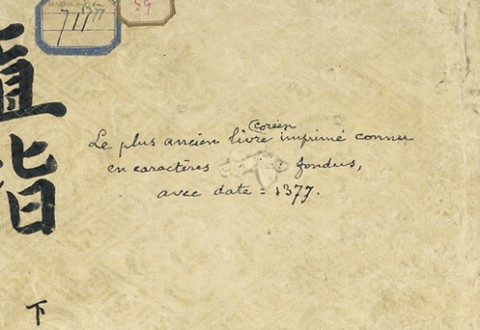 直指
下
59
Le plus ancien livre Coréen imprimé connu
en caractères fondus,
avec date = 1377.